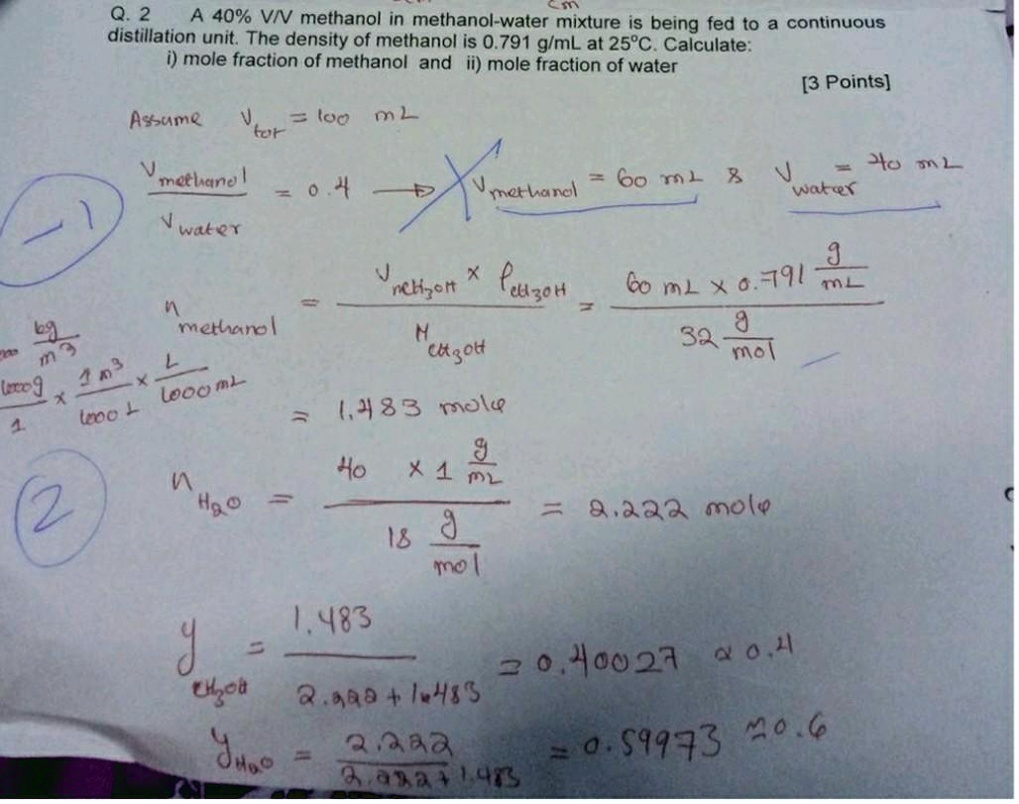 Q. 2 A 40% V/V methanol in methanol-water mixture is being fed to a continuous
distillation unit. The density of methanol is 0.791 g/mL at 25°C. Calculate:
i) mole fraction of methanol and ii) mole fraction of water
[3 Points]
Assume V tot = 100 mL
V methanol / V water = 0.4 → V methanol = 60 mL & V water = 40 mL
-1
n methanol = V CH3OH × ρ CH3OH / M CH3OH = 60 mL × 0.791 g/mL / 32 g/mol
kg/m³
1000g/1 × 1 m³/1000 L × L/1000 mL
= 1.483 mole
2
n H2O = 40 × 1 g/mL / 18 g/mol = 2.222 mole
y CH3OH = 1.483 / 2.222 + 1.483 = 0.40027 ≈ 0.4
y H2O = 2.222 / 2.222 + 1.483 = 0.59973 ≈ 0.6